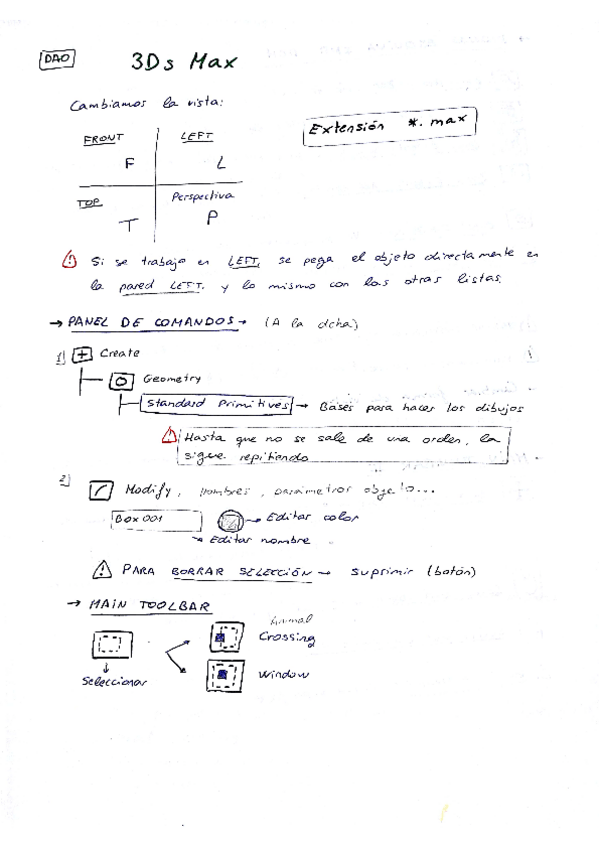 DAO
3Ds Max
Cambiamos la vista:
Extensión *.max
FRONT LEFT
F L
TOP Perspectiva
T P
Si se trabaja en LEFT, se pega el objeto directamente en
la pared LEFT. y lo mismo con las otras listas.
→ PANEL DE COMANDOS → (A la dcha)
1) + Create
Geometry
Standard Primitives → Bases para hacer los dibujos
Hasta que no se sale de una orden, la
sigue repitiendo
2) Modify, nombres, parámetros objeto...
Box 001 → Editar color
→ Editar nombre
PARA BORRAR SELECCIÓN → Suprimir (botón)
→ MAIN TOOLBAR
Animal
Crossing
Seleccionar
Window